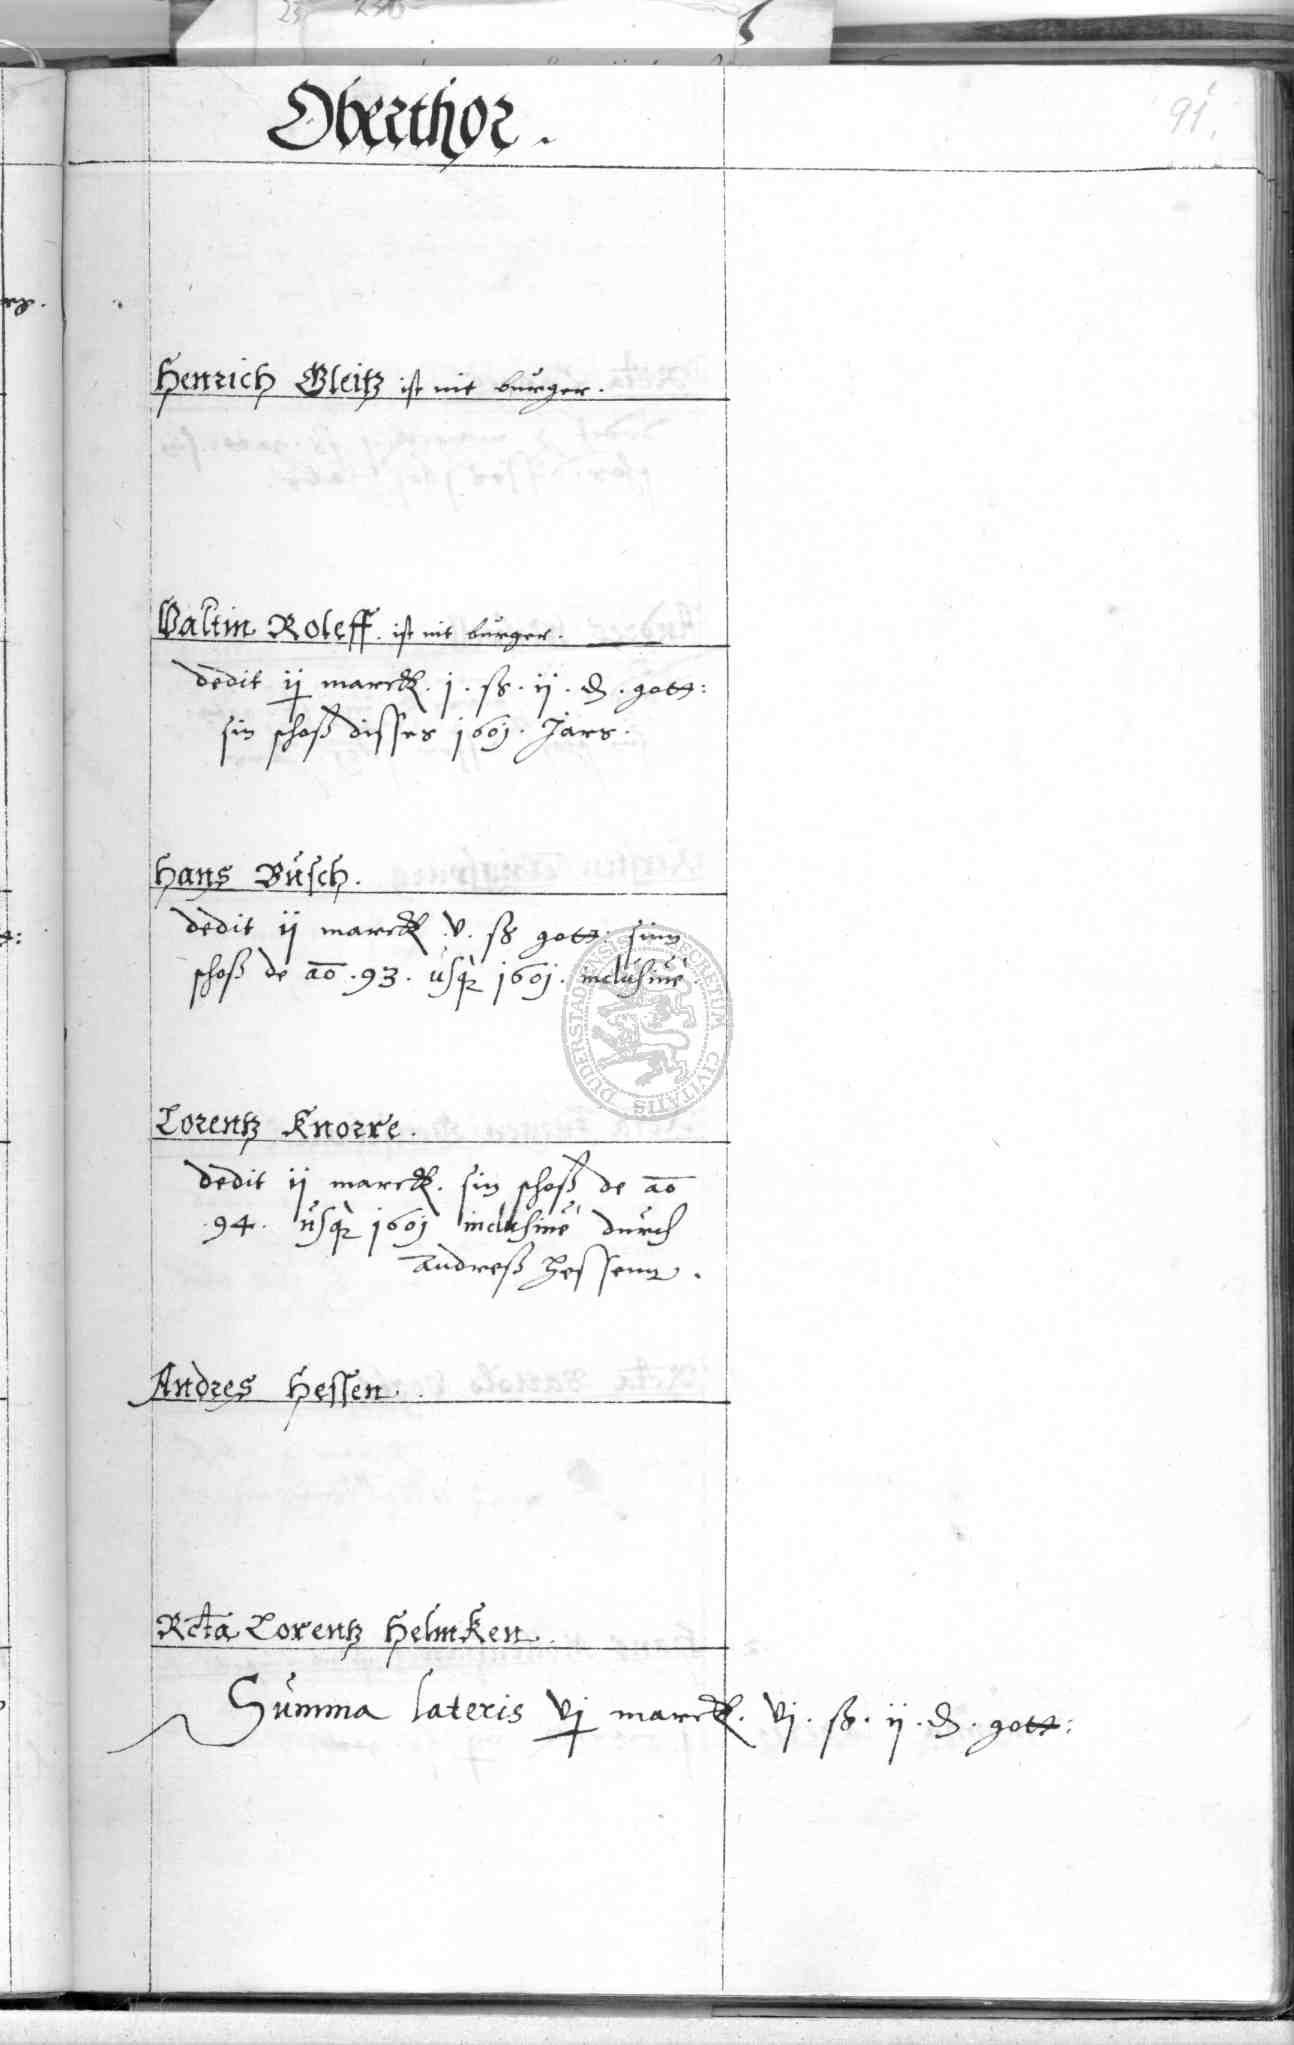 Oberthor.
91.
Henrich Gleitz ist nit burger.
Valtin Roleff. ist nit burger.
dedit ij marck. j. ß. ij. d. gott:
sin schoß disses 1601. Jars.
Hans Busch.
dedit ij marck v. ß gott: sinn
schoß de ao. 93. usq 1601. inclusiue.
Lorentz Knorre.
dedit ij marck. sin schoß de ao
.94. usq 1601 inclusiue durch
Andreß Hessenn.
Andres Hessen.
Rcta Lorentz Helmken.
Summa lateris vj marck. vj. ß. ij. d. gott:
SECRETUM CIVITATIS DUDERSTADENSIS